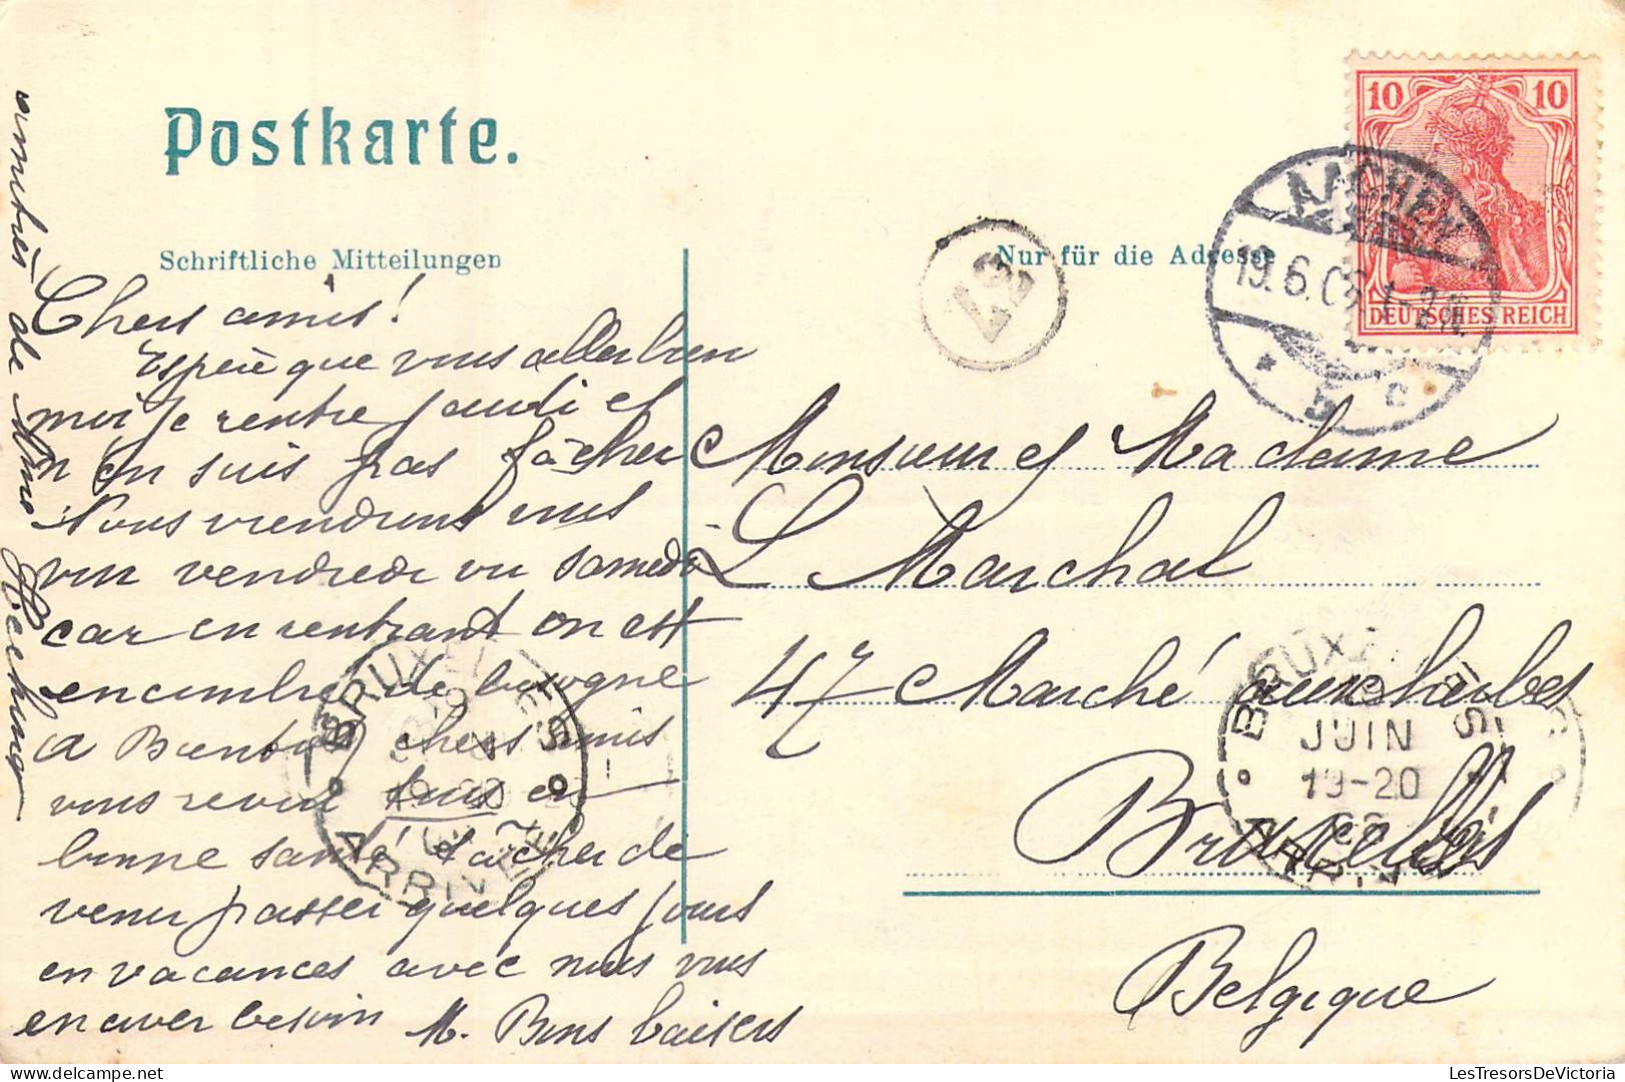 Postkarte.
Schriftliche Mitteilungen
Nur für die Adresse
10 10
DEUTSCHES REICH
AACHEN
19.6.0
37
Chers amis!
Espère que vous aller bien
moi je rentre jeudi et
n'en suis pas fâcher
Nous viendrons vous
voir vendredi ou samedi
car en rentrant on est
encombré de besogne
A Bientôt chers amis
vous revoir tous en
bonne santé tâcher de
venir passer quelques jours
en vacances avec nous vous
en avez besoin M. Bons baisers
amitiés de Mme
Monsieur et Madame
L Marchal
47 Marché aux herbes
Bruxelles
Belgique
BRUXELLES
ARRIVEE
BRUXELLES
JUIN
19-20
LesTresorsDeVictoria